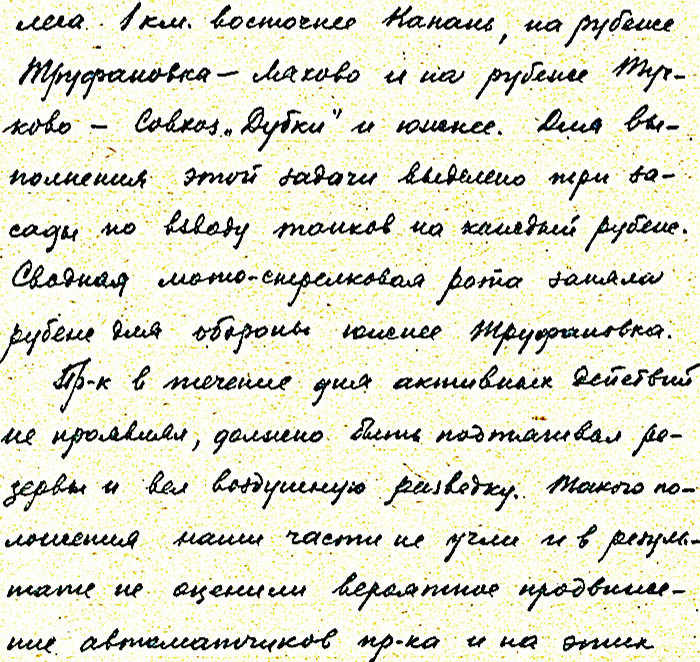 леса 1 км. восточнее Канань, на рубеже
Труфановка – Ляхово и на рубеже Тур-
ково – Совхоз „Дубки" и южнее. Для вы-
полнения этой задачи выделено три за-
сады по взводу танков на каждый рубеж.
Сводная мото-стрелковая рота заняла
рубеж для обороны южнее Труфановка.
Пр-к в течение дня активных действий
не проявлял, должно быть подтягивал ре-
зервы и вел воздушную разведку. Такого по-
ложения наши части не учли и в резуль-
тате не оценили вероятное продвиже-
ние автоматчиков пр-ка и на этих